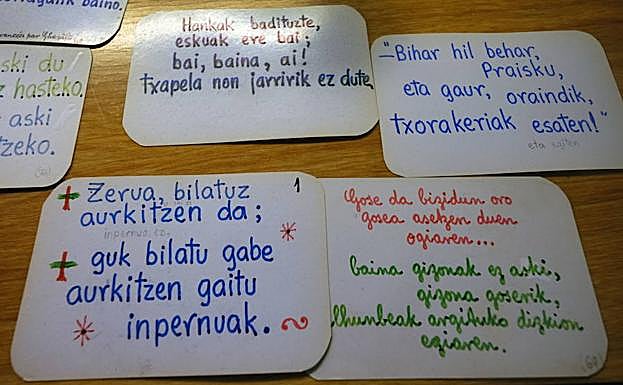 baino.
ski du
z hasteko.
aski
tzeko.
Hankak badituzte,
eskuak ere bai;
bai, baina, ai!
txapela non jarririk ez dute.
"–Bihar hil behar,
Praisku,
eta gaur, oraindik,
txorakeriak esaten!"
1
Zerua, bilatuz
aurkitzen da;
guk bilatu gabe
aurkitzen gaitu
inpernuak.
Gose da bizidun oro
gosea asetzen duen
ogiaren...
baina gizonak ez aski,
gizona goserik,
ilhunbeak argituko dizkion
egiaren.